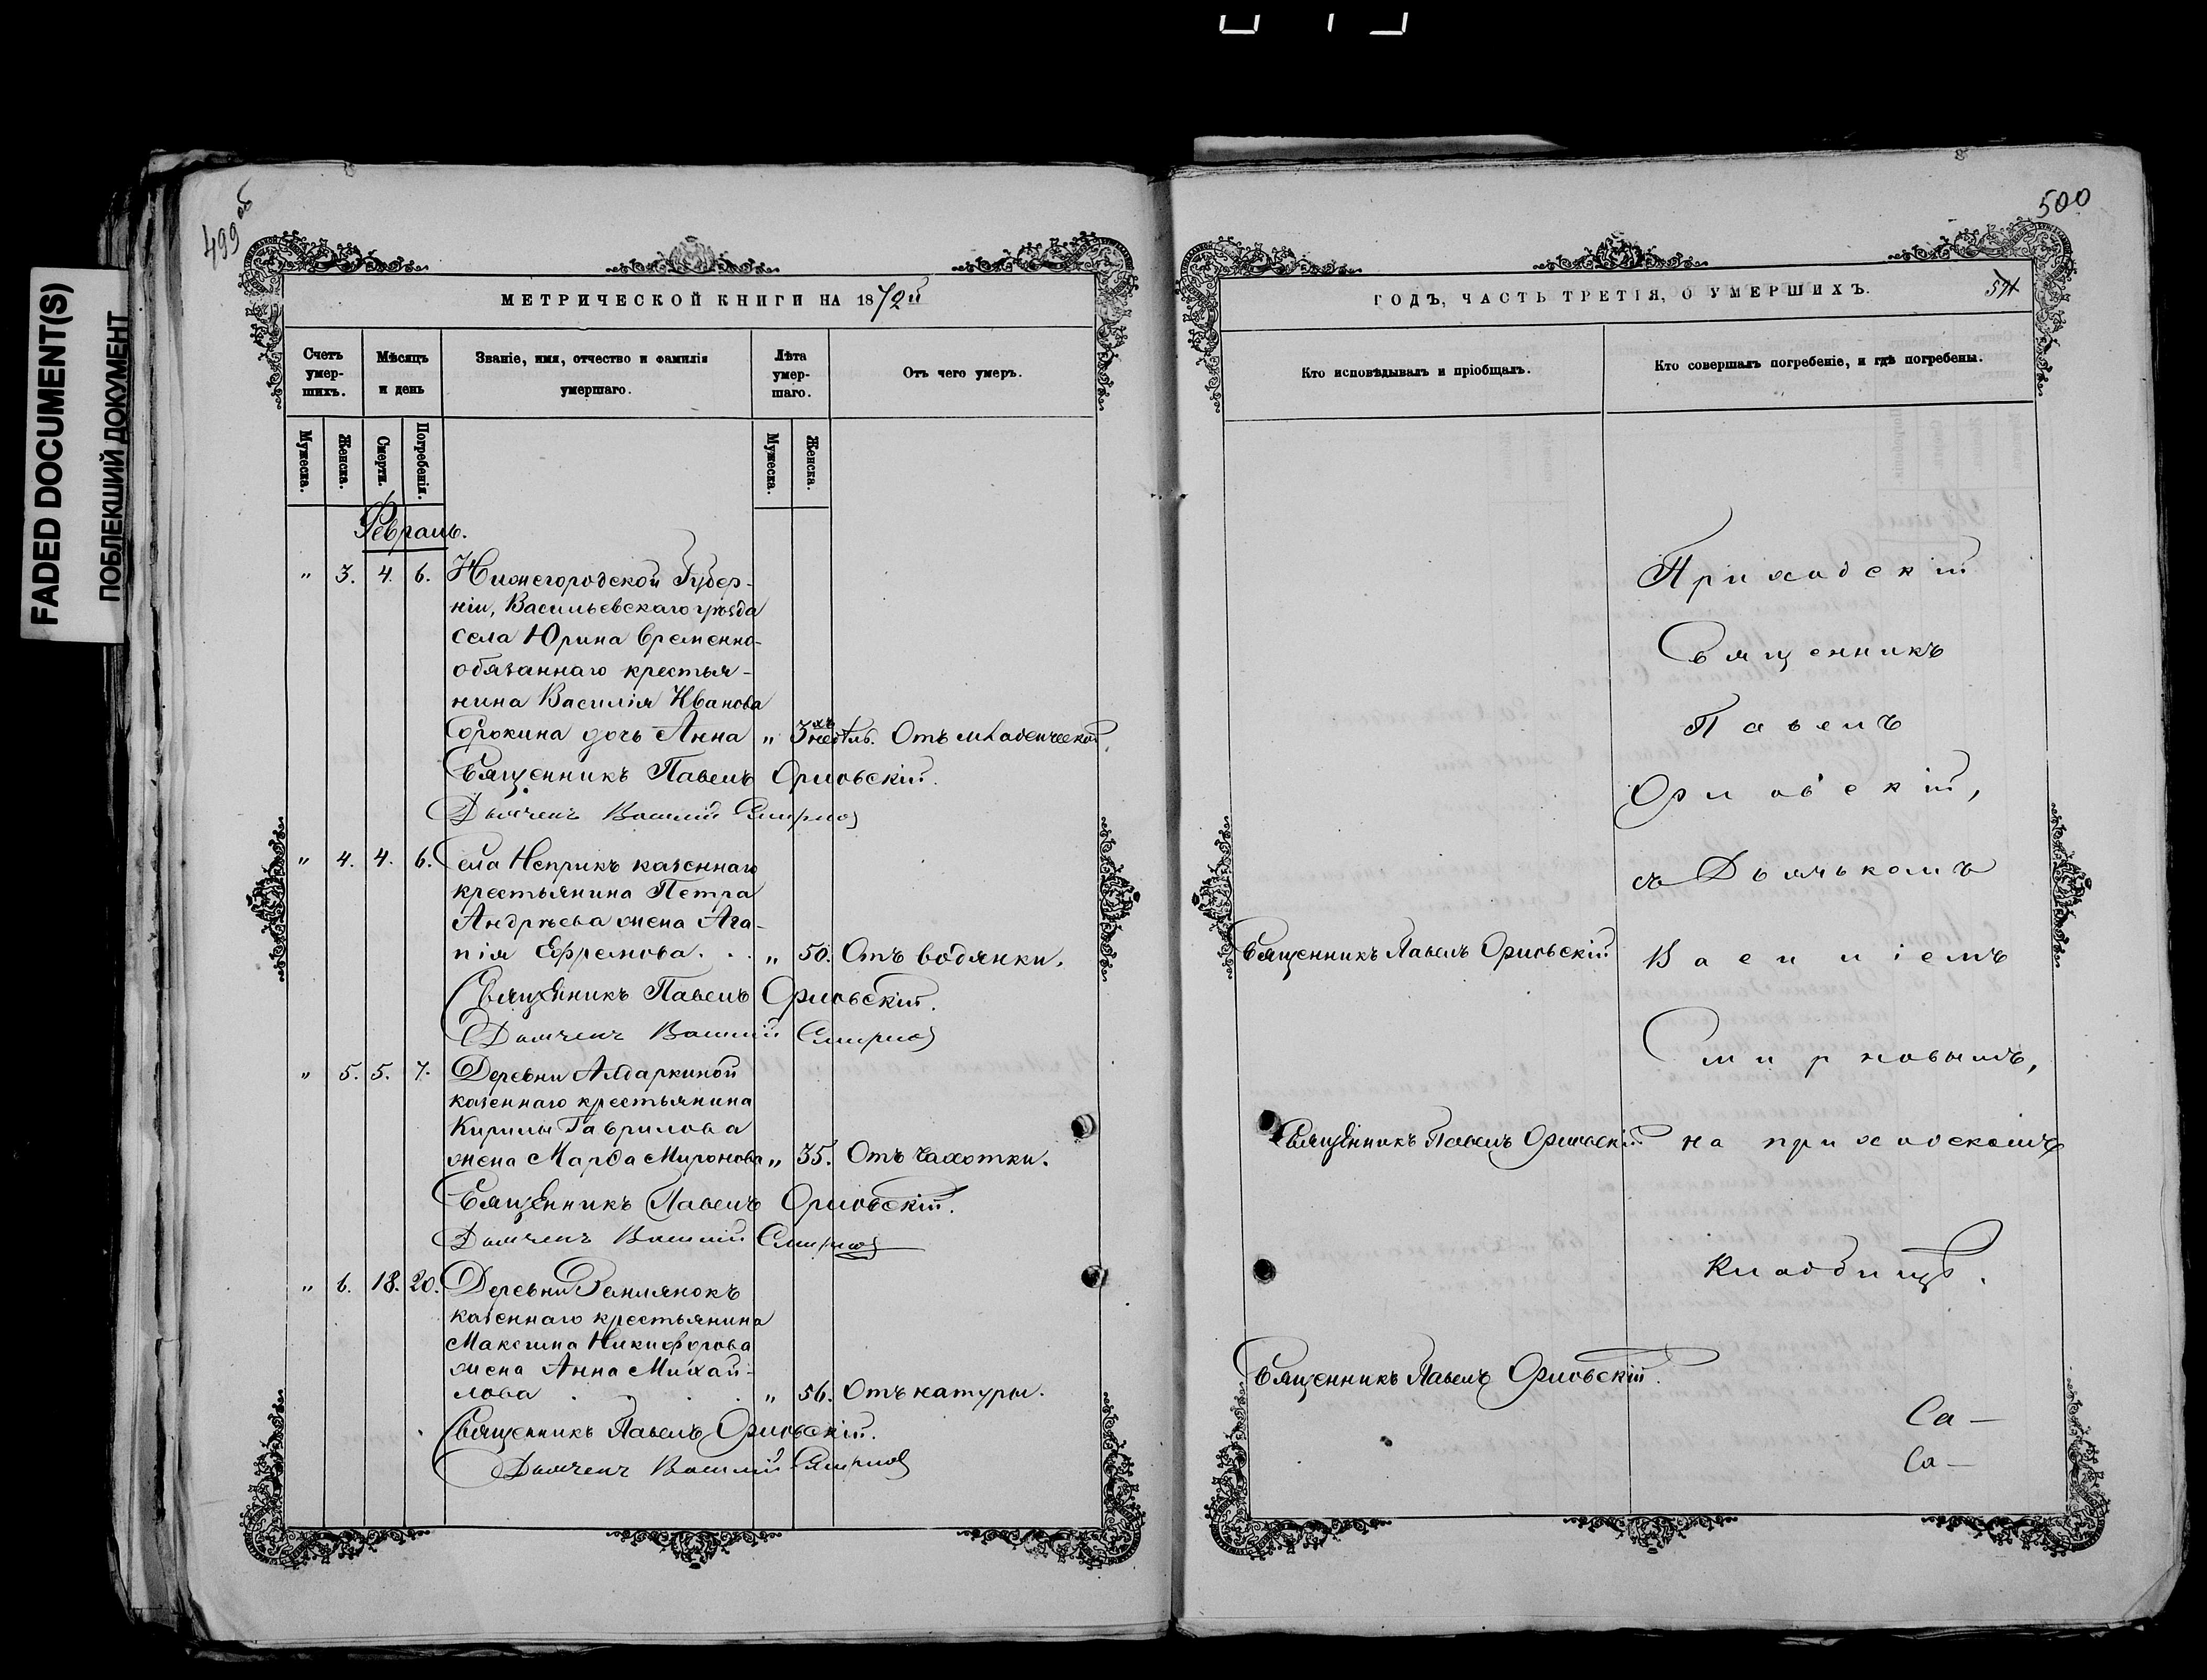 FADED DOCUMENT(S)
ПОБЛЕКШИЙ ДОКУМЕНТ
499 об
МЕТРИЧЕСКОЙ КНИГИ НА 1872й
Счетъ умершихъ.
Мѣсяцъ и день
Званіе, имя, отчество и фамилія умершаго.
Лѣта умершаго.
Отъ чего умеръ.
Мужеска.
Женска.
Смерти.
Погребенія.
Мужеска.
Женска.
Февраль.
" 3. 4. 6. Нижегородской Губер-
ніи, Васильевскаго уѣзда
села Юрина временно-
обязаннаго крестья-
нина Василія Иванова
Сорокина дочь Анна " 3хъ недѣль. Отъ младенческой.
Священникъ Павелъ Орловскій.
Дьячекъ Василій Смирнов
" 4. 4. 6. Села Неприкъ казеннаго
крестьянина Петра
Андрѣева жена Ага-
пія Ефремова. . . " 50. Отъ водянки.
Священникъ Павелъ Орловскій.
Дьячекъ Василій Смирнов
" 5. 5. 7. Деревни Алдаркиной
казеннаго крестьянина
Кирилы Гаврилова
жена Марѳа Миронова " 35. Отъ чахотки.
Священникъ Павелъ Орловскій.
Дьячекъ Василій Смирнов
" 6. 18. 20. Деревни Землянокъ
казеннаго крестьянина
Максима Никифорова
жена Анна Михай-
лова . . . " 56. Отъ натуры.
Священникъ Павелъ Орловскій.
Дьячекъ Василій Смирнов
500
ГОДЪ, ЧАСТЬ ТРЕТІЯ, О УМЕРШИХЪ.
Кто исповѣдывалъ и пріобщалъ.
Кто совершалъ погребеніе, и гдѣ погребены.
Приходскій
Священникъ
Павелъ
Орловскій,
съ Дьячькомъ
Священникъ Павелъ Орловскій
Василіемъ
Смирновымъ,
Священникъ Павелъ Орловскій
на приходскомъ
кладбищѣ.
Священникъ Павелъ Орловскій.
Са—
Са—